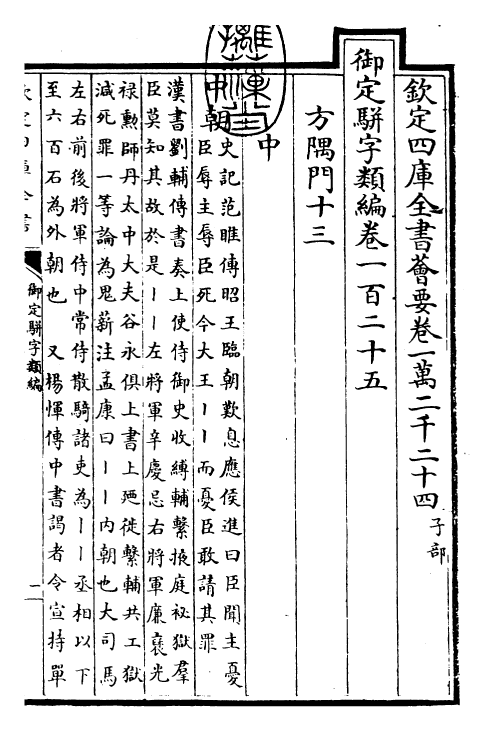 欽定四庫全書薈要卷一萬二千二十四 子部
御定駢字類編卷一百二十五
方隅門十三
中
中朝 史記范睢傳昭王臨朝歎息應侯進曰臣聞主憂
臣辱主辱臣死今大王丨丨而憂臣敢請其罪
漢書劉輔傳書奏上使侍御史收縛輔繫掖庭祕獄羣
臣莫知其故於是丨丨左將軍辛慶忌右將軍廉襃光
祿勲師丹太中大夫谷永俱上書上廼徙繫輔共工獄
減死罪一等論為鬼薪注孟康曰丨丨內朝也大司馬
左右前後將軍侍中常侍散騎諸吏為丨丨丞相以下
至六百石為外朝也 又楊惲傳中書謁者令宣持單
欽定四庫全書
御定駢字類編
一